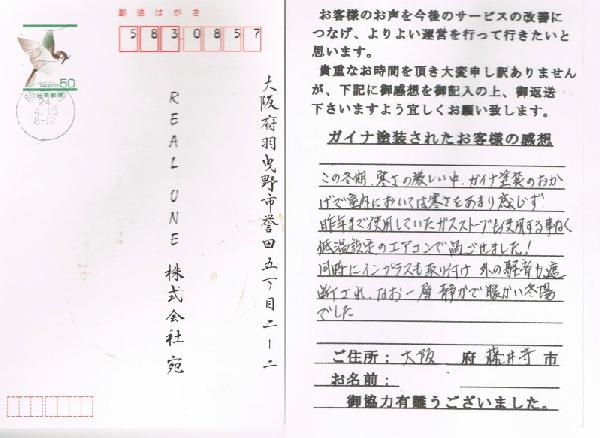 郵便はがき
5830857
NIPPON 50
日本郵便
24
4.15
8-12
大阪府羽曳野市誉田五丁目二ー二
REAL ONE 株式会社 宛
お客様のお声を今後のサービスの改善に
つなげ、よりよい運営を行って行きたいと
思います。
貴重なお時間を頂き大変申し訳ありません
が、下記に御感想を御記入の上、御返送
下さいますよう宜しくお願い致します。
ガイナ塗装されたお客様の感想
この冬期、寒さの厳しい中、ガイナ塗装のおか
げで室内においては寒さをあまり感じず
昨年まで使用していたガスストーブも使用する事なく
低温設定のエアコンで過ごせました!
同時にインプラスも取り付け 外の騒音も遮
断され、なお一層 静かで暖かい冬場
でした
ご住所: 大阪 府 藤井寺 市
お名前:
御協力有難うございました。